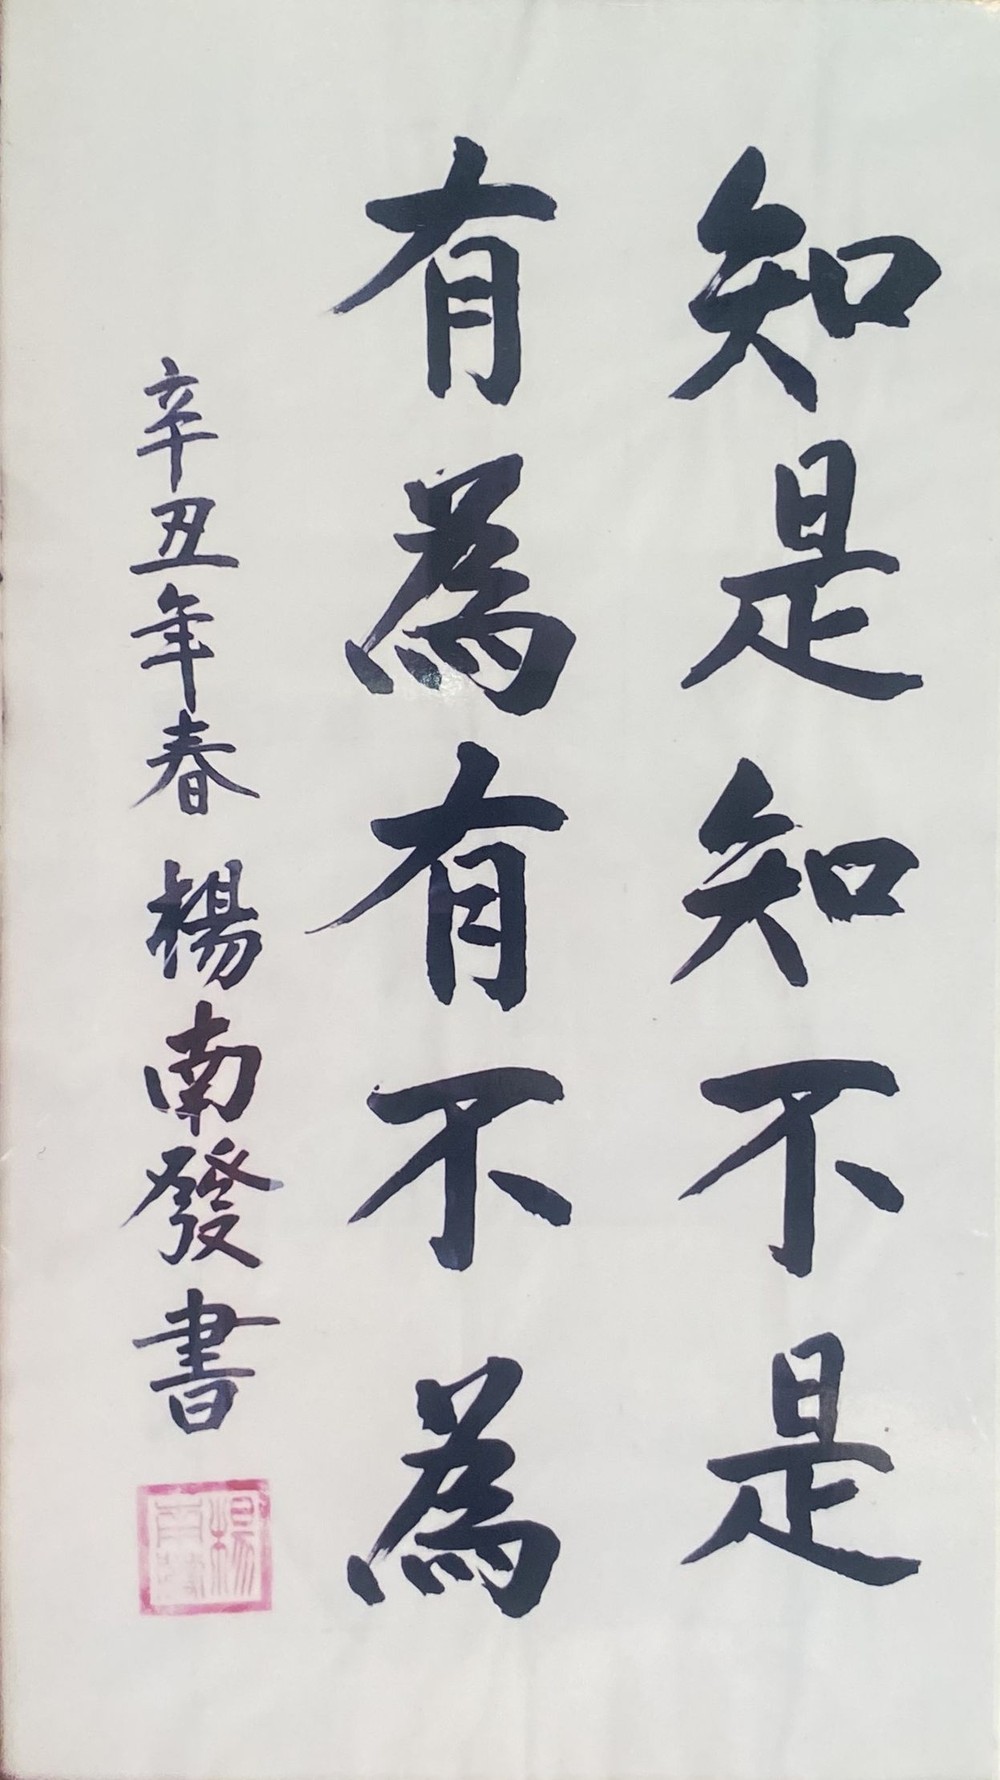 知是知不是
有為有不為
辛丑年春 楊南發書